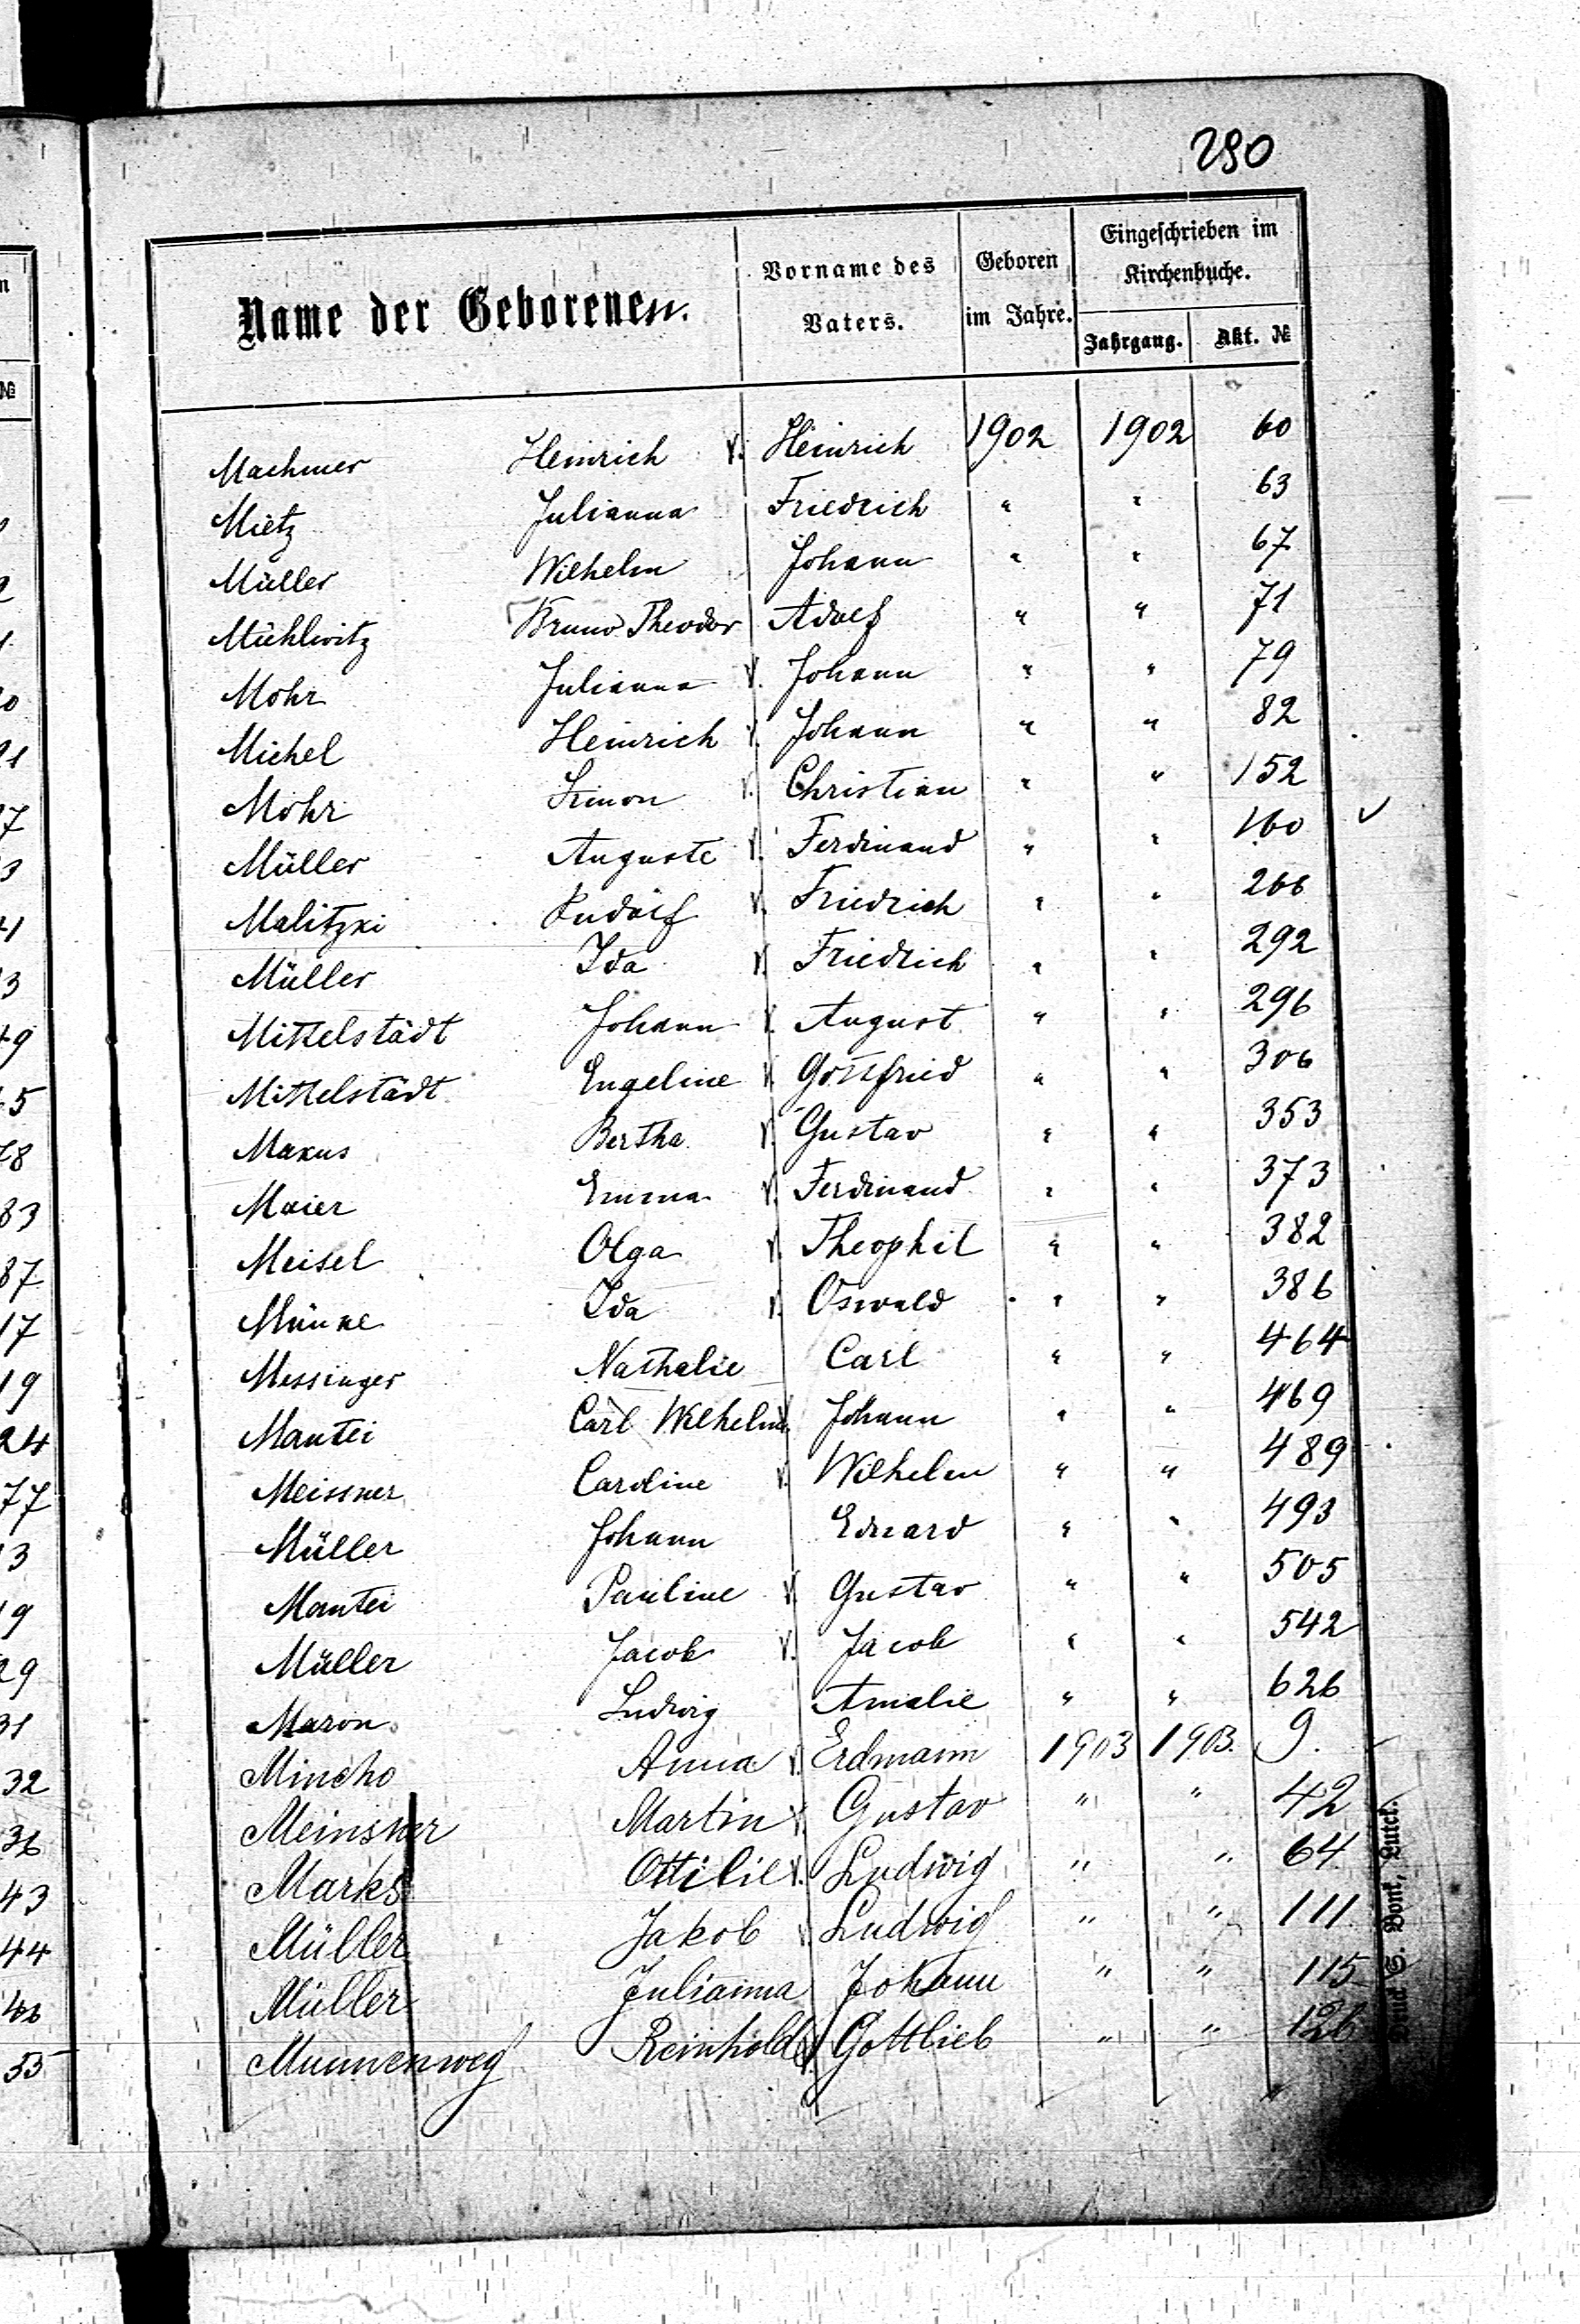 290
Name der Geborenen. Vorname des Vaters. Geboren im Jahre. Eingeschrieben im Kirchenbuche.
Jahrgang. Akt. №
Machmer Heinrich v. Heinrich 1902 1902 60
Mietz Julianna Friedrich " " 63
Müller Wilhelm Johann " " 67
Mühlwitz Bruno Theodor Adolf " " 71
Mohr Julianna v. Johann " " 79
Michel Heinrich v. Johann " " 82
Mohr Simon v. Christian " " 152
Müller Auguste v. Ferdinand " " 160 ✓
Malitzki Rudolf v. Friedrich " " 266
Müller Ida v. Friedrich " " 292
Mittelstädt Johann v. August " " 296
Mittelstädt Engeline v. Gottfried " " 306
Maxus Bertha v. Gustav " " 353
Maier Emma v. Ferdinand " " 373
Meisel Olga v. Theophil " " 382
Münke Ida v. Oswald " " 386
Messinger Nathalie Carl " " 464
Mantei Carl Wilhelm v. Johann " " 469
Meissner Caroline v. Wilhelm " " 489
Müller Johann Eduard " " 493
Mantei Pauline v. Gustav " " 505
Müller Jacob v. Jacob " " 542
Maron Ludwig Amalie " " 626
Mincho Anna v. Erdmann 1903 1903. 9.
Meinsner Martin v. Gustav " " 42
Marks Ottilie v. Ludwig " " 64
Müller Jakob v. Ludwig " " 111
Müller Julianna Johann " " 115
Munnenweg Reinhold v. Gottlieb " " 126